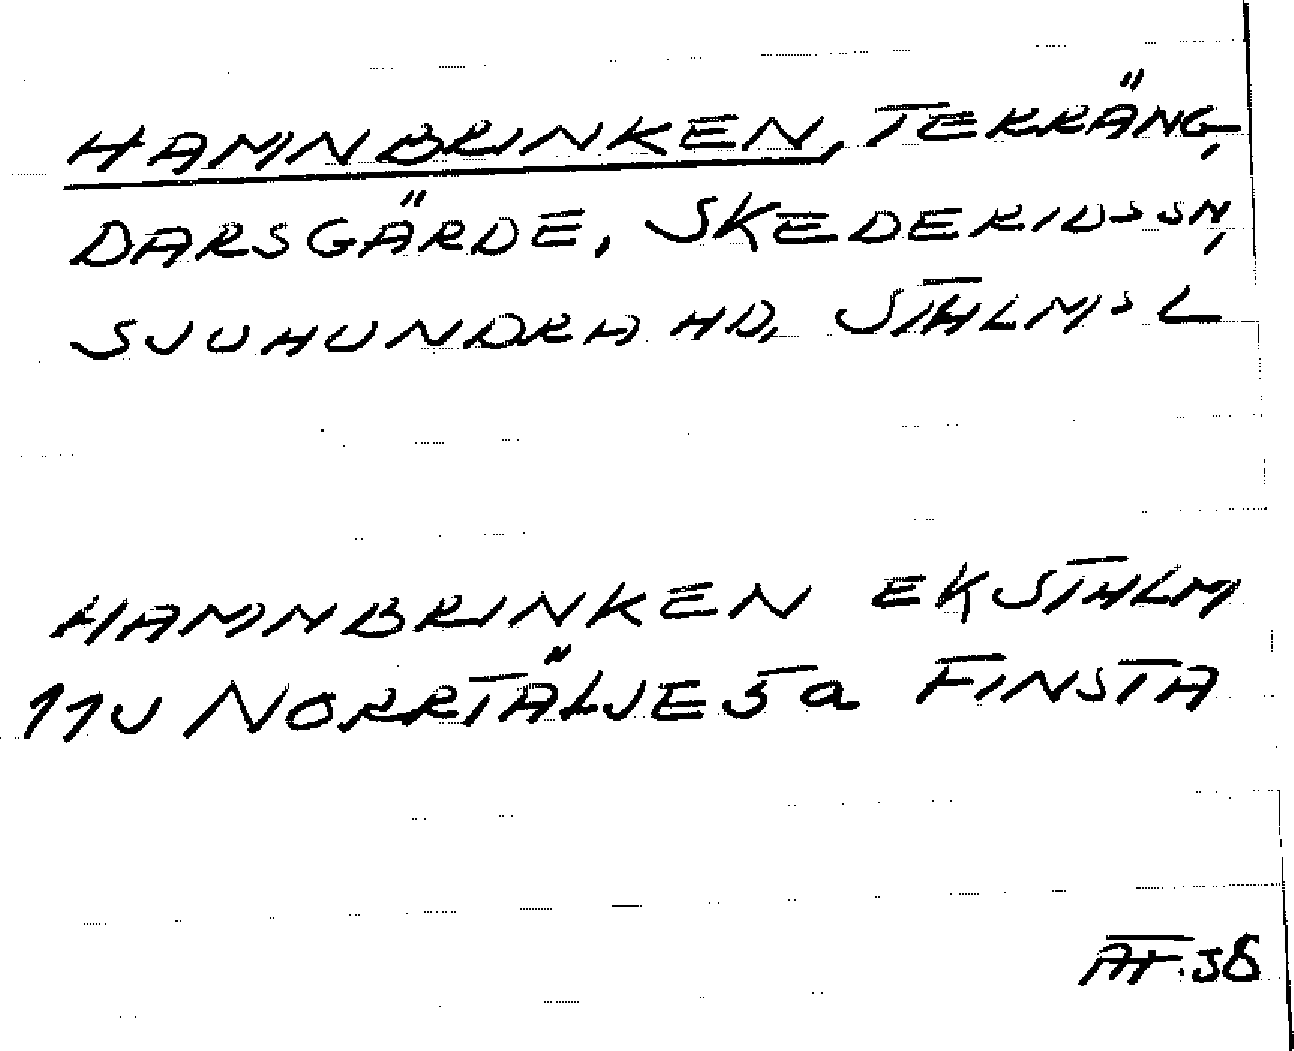 HAMNBRINKEN, TERRÄNG,
DARSGÄRDE, SKEDERIDS SN,
SJUHUNDRA HD, STHLMS L
HAMNBRINKEN EKSTHLM
11J NORRTÄLJE 5a FINSTA